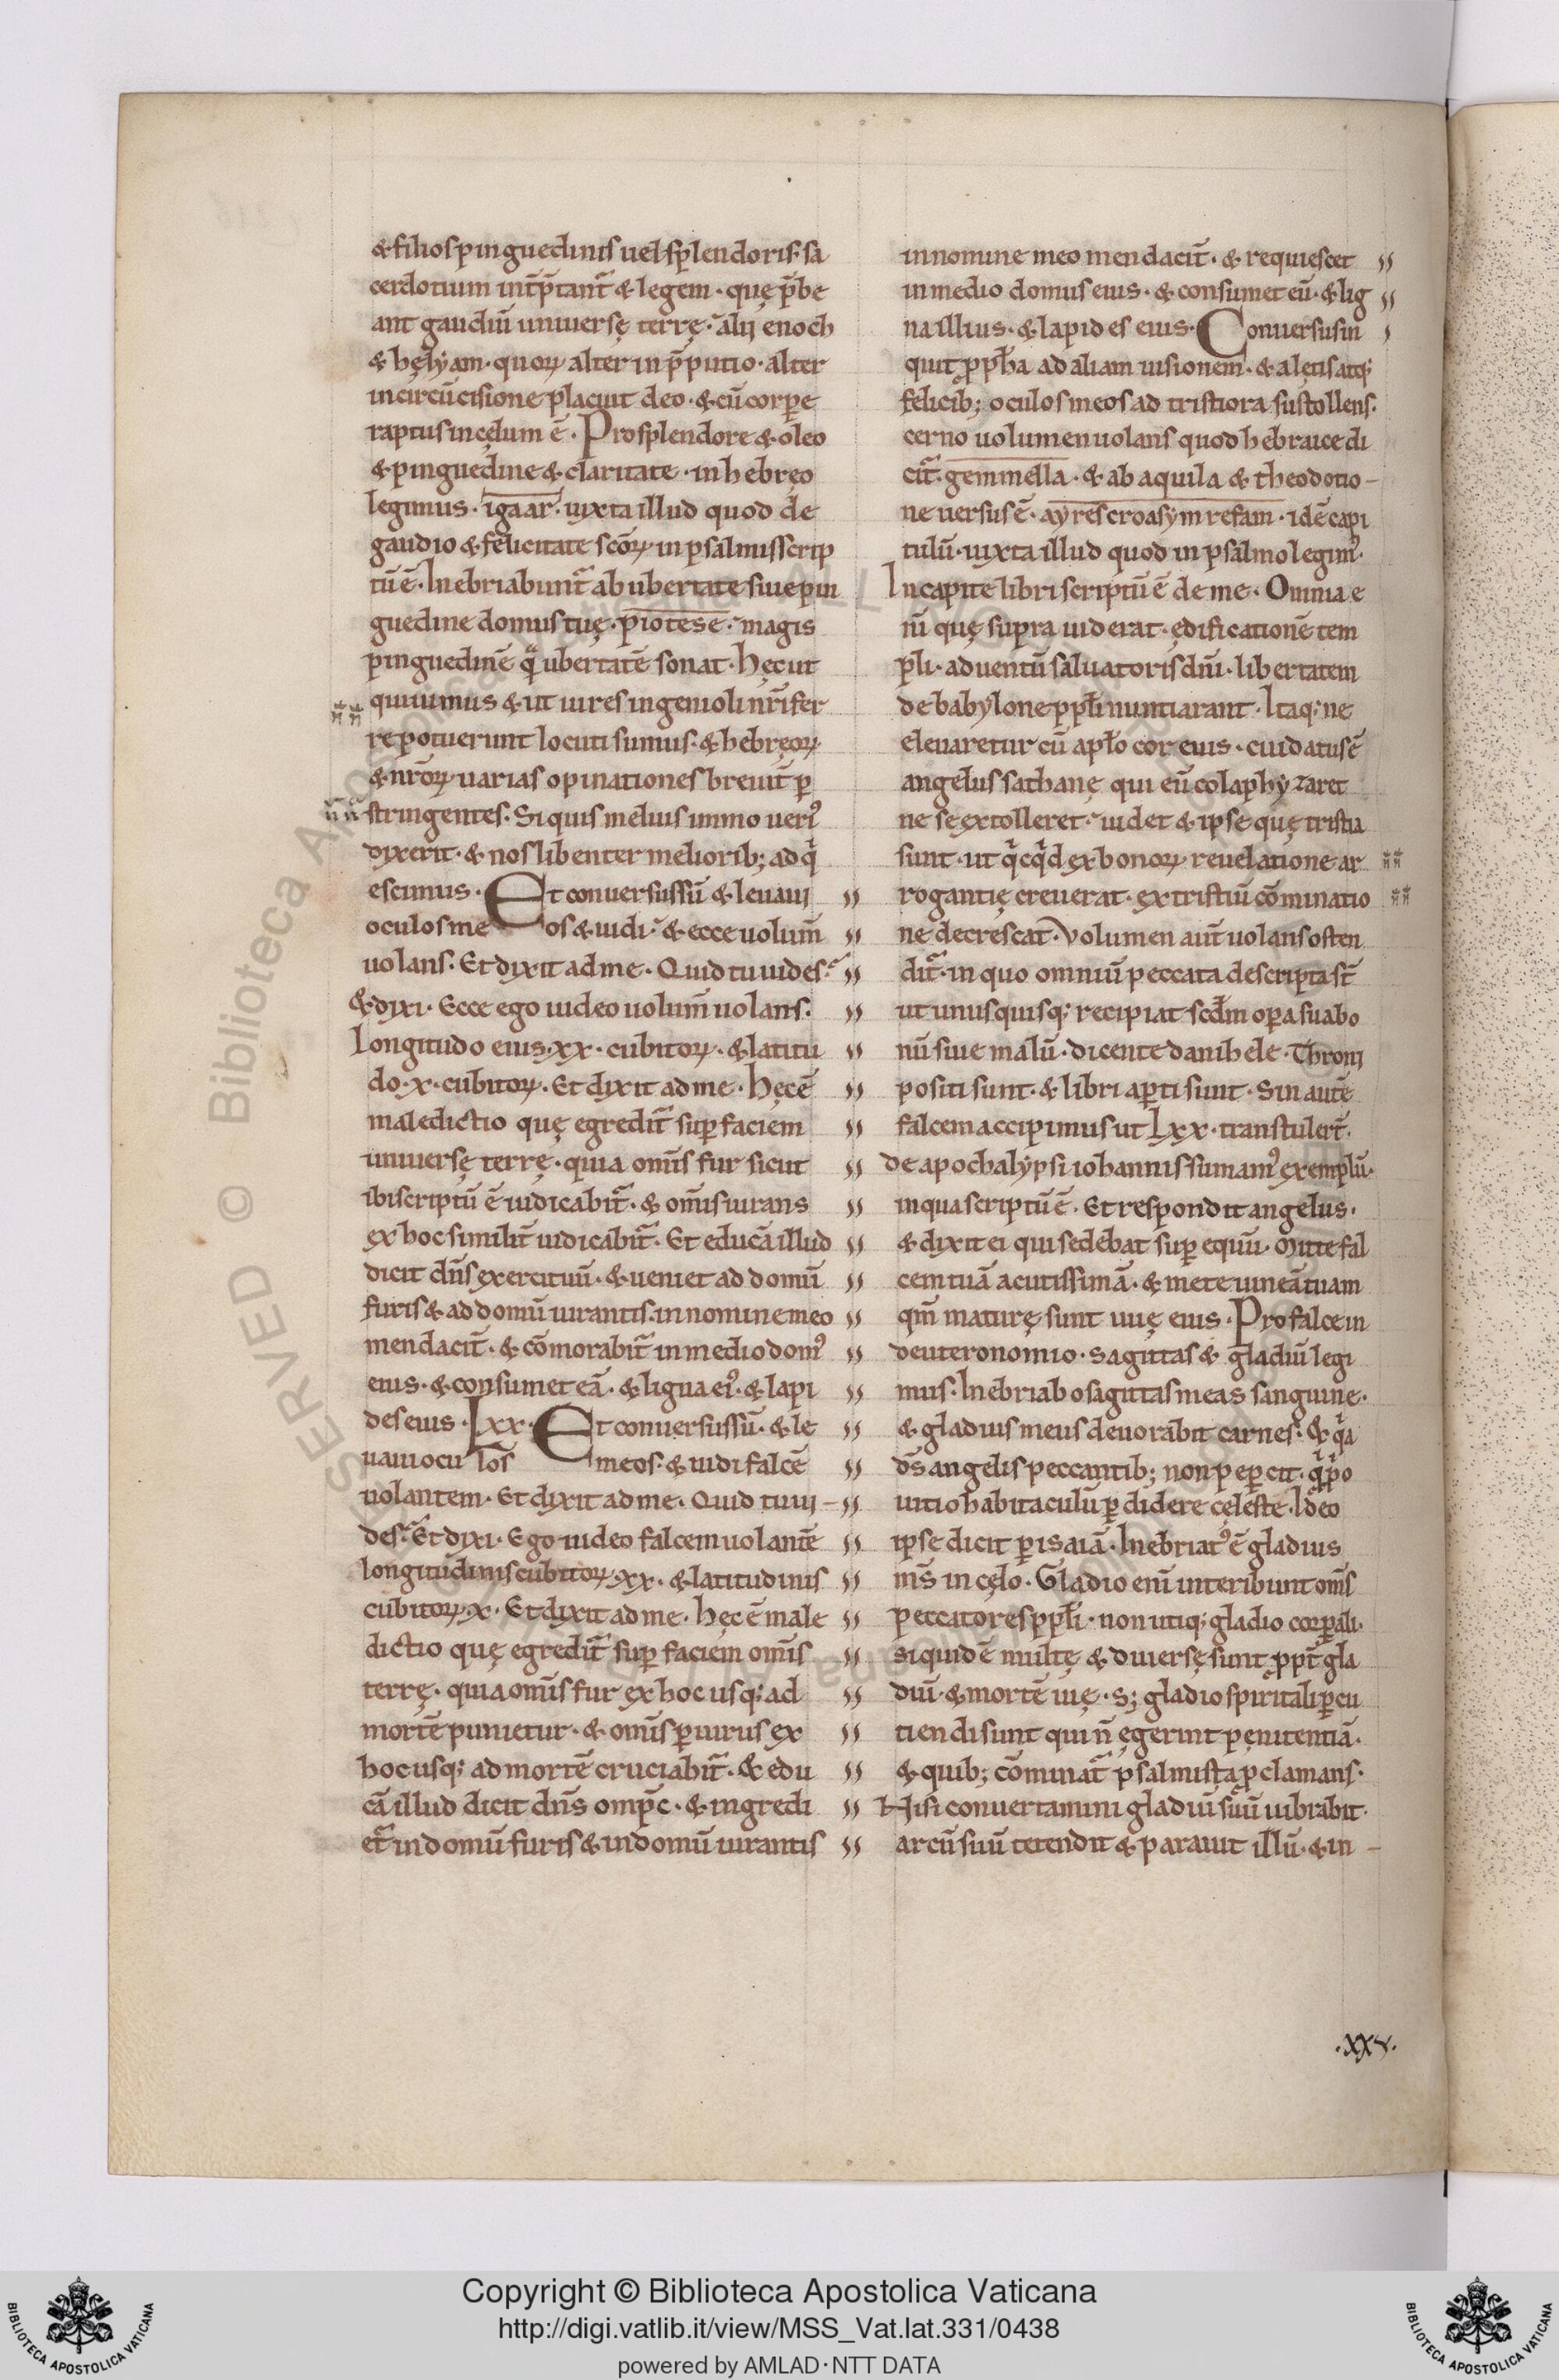 &filios pinguedinis uel splendoris· sa
cerdotium int̄p̄tant̄ & legem· quę p̄be
ant gaudiū uniuersę terrę· alij enoch
& hęlyam· quoꝝ alter in p̄putio· alter
in circūcisione placuit deo· & cū corꝑe
raptus in cęlum ē· Pro splendore & oleo
& pinguedine & claritate· in hebręo
legimus· igaar· iuxta illud quod de
gaudio & felicitate scōꝝ in psalmis scrip
tū ē· Inebriabunt̄ ab ubertate siue pin
guedine domus tuę· piotese· magis
pinguedinē quā ubertatē sonat· hęc ut
quiuimus & ut uires ingenioli nr̄i fer
re potuerunt locuti sumus· & hebręoꝝ
& nr̄oꝝ uarias opinationes breuit̄ ꝑ
stringentes· Si quis melius immo ueriꝰ
dixerit· & nos libenter meliorib; adq̇
escimus· Et conuersus sū & leuaui
oculos meos & uidi· & ecce uolum̄
uolans· Et dixit ad me· Quid tu uides·
& dixi· Ecce ego uideo uolum̄ uolans·
Longitudo eius·xx·cubitoꝝ· & latitu
do·x·cubitoꝝ· Et dixit ad me· hęc ē
maledictio quę egredit̄ suꝑ faciem
uniuersę terrę· quia omīs fur sicut
ibi scriptū ē iudicabit̄· & omīs iurans
ex hoc similit̄ iudicabit̄· Et educā illud
dicit dn̄s exercituū· & ueniet ad domū
furis & ad domū iurantis· in nomine meo
mendacit̄· & cōmorabit̄ in medio domꝰ
eius· & consumet eā· & ligna eiꝰ· & lapi
des eius· Lxx· Et conuersus sū· & le
uaui oculos meos· & uidi falcē
uolantem· Et dixit ad me· Quid tu ui-
des· Et dixi· Ego uideo falcem uolantē
longitudinis cubitoꝝ·xx· & latitudinis
cubitoꝝ·x· Et dixit ad me· hęc ē male
dictio quę egredit̄ suꝑ faciem omīs
terrę· quia omīs fur ex hoc usq; ad
mortē punietur· & omīs ꝑiurus ex
hoc usq; ad mortē cruciabit̄· & edu
cā illud dicit dn̄s omp̄c· & ingredi
et̄ in domū furis & in domū iurantis
in nomine meo mendacit̄· & requiescet
in medio domus eius· & consumet eū· & lig
na illius· & lapides eius· Conuersus in
quit ꝓpħa ad aliam uisionem· & a lętis atq;
felicib; oculos meos ad tristiora sustollens·
cerno uolumen uolans quod hebraice di
cit̄· gemmella· & ab aquila & theodotio-
ne uersus ē· ayres croasymrefam· idē capi
tulū· iuxta illud quod in psalmo legimꝰ·
In capite libri scriptū ē de me· Omnia e
nī quę supra uiderat· ędificationē tem
pli· aduentū saluatoris dn̄i· libertatem
de babylone ppłi nuntiarant· Itaq; ne
eleuaretur cū apło cor eius· cui datus ē
angelus sathanę qui eū colaphyzaret
ne se extolleret· uidet & ipse quę tristia
sunt· ut q̇cq̇d ex bonoꝝ reuelatione ar
rogantię creuerat· ex tristiū cōminatio
ne decrescat· Volumen aut̄ uolans osten
dit̄· in quo omniū peccata descripta st̄
ut unusquisq; recipiat scđm oꝑa sua bo
nū siue malū· dicente danihele· Throni
positi sunt· & libri aꝑti sunt· Sin autē
falcem accipimus ut Lxx· transtulert̄·
de apochalypsi iohannis sumamꝰ exemplū·
in qua scriptū ē· Et respondit angelus·
& dixit ei qui sedebat suꝑ equū· Mitte fal
cem tuā acutissimā· & mete uineā tuam
qm̄ maturę sunt uuę eius· Pro falce in
deuteronomio· sagittas & gladiū legi
mus· Inebriabo sagittas meas sanguine·
& gladius meus deuorabit carnes· & q̇a
ds̄ angelis peccantib; non peꝑcit· q̇ ꝓpo
uitio habitaculū ꝑdidere cęleste· Ideo
ipse dicit ꝑ isaiā· Inebriatꝰ ē gladius
ms̄ in cęlo· Gladio enī interibunt omīs
peccatores ppłi· non utiq; gladio corꝑali·
siquidē multę & diuersę sunt ꝓpt̄ gla
diū· & mortē uię· S; gladio spiritali ꝑcu
tiendi sunt qui n̄ egerint pęnitentiā·
& quib; cōminat̄ psalmista ꝓclamans·
Nisi conuertamini gladiū suū uibrabit·
arcū suū tetendit & parauit illū· & in-
·xxv·
Copyright © Biblioteca Apostolica Vaticana
http://digi.vatlib.it/view/MSS_Vat.lat.331/0438
powered by AMLAD·NTT DATA
BIBLIOTECA APOSTOLICA VATICANA
BIBLIOTECA APOSTOLICA VATICANA